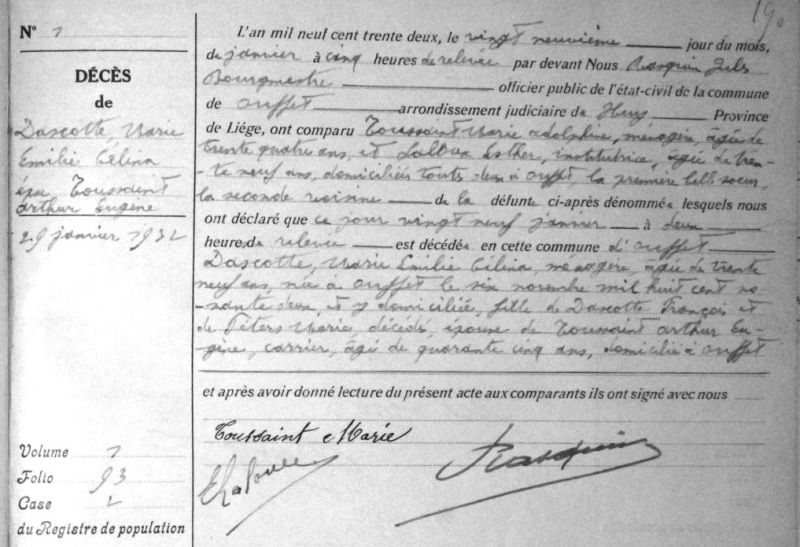 190
N° 7
DÉCÈS
de
Dascotte Marie
Emilie Célina
épse Toussaint
Arthur Eugène
29 janvier 1932
Volume 7
Folio 93
Case 2
du Registre de population
L'an mil neuf cent trente deux, le vingt neuvième jour du mois,
de janvier à cinq heures de relevée par devant Nous Rasquin Jules
Bourgmestre officier public de l'état-civil de la commune
de Ouffet arrondissement judiciaire de Huy, Province
de Liége, ont comparu Toussaint Marie Adolphine, ménagère, âgée de
trente quatre ans, et Esther, institutrice, âgée de tren-
te neuf ans, domiciliés touts deux à Ouffet, la première belle soeur,
la seconde voisine de la défunte ci-après dénommée lesquels nous
ont déclaré que ce jour vingt neuf janvier à deux
heures de relevée est décédée en cette commune d'Ouffet
Dascotte, Marie Emilie Célina, ménagère, âgée de trente
neuf ans, née à Ouffet le six novembre mil huit cent no-
nante deux, et y domiciliée, fille de Dascotte François et
de Péters Marie, décédés, épouse de Toussaint Arthur Eu-
gène, carrier, âgé de quarante cinq ans, domicilié à Ouffet
et après avoir donné lecture du présent acte aux comparants ils ont signé avec nous
Toussaint Marie
Rasquin